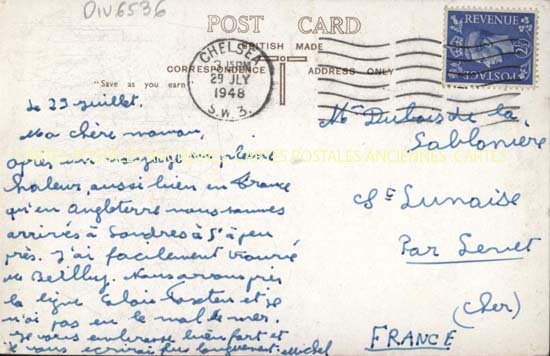 DIV6536
POST CARD
BRITISH MADE
CORRESPONDENCE ADDRESS ONLY
"Save as you earn"
CHELSEA
3 15PM
29 JLY
1948
S.W.3.
REVENUE
2½D
POSTAGE
CARTES POSTALES ANCIENNES CARTES
Le 29 juillet.
Ma chère maman,
après un voyage en pleine
chaleur, aussi bien en France
qu'en Angleterre nous sommes
arrivés à Londres à 5h à peu
près. J'ai facilement trouvé
Nous avons pris
la ligne Calais et je
n'ai pas eu le mal de mer.
Je vous embrasse bien fort et
vous écrirai plus longuement. Michel
Dubois de la
Sablonière
Lunaise
Par Levet
(Cher)
FRANCE